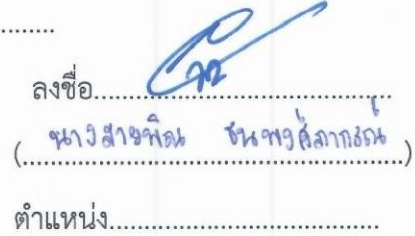 ลงชื่อ
(นางสายพิณ ธนพงศ์ภากรณ์)
ตำแหน่ง